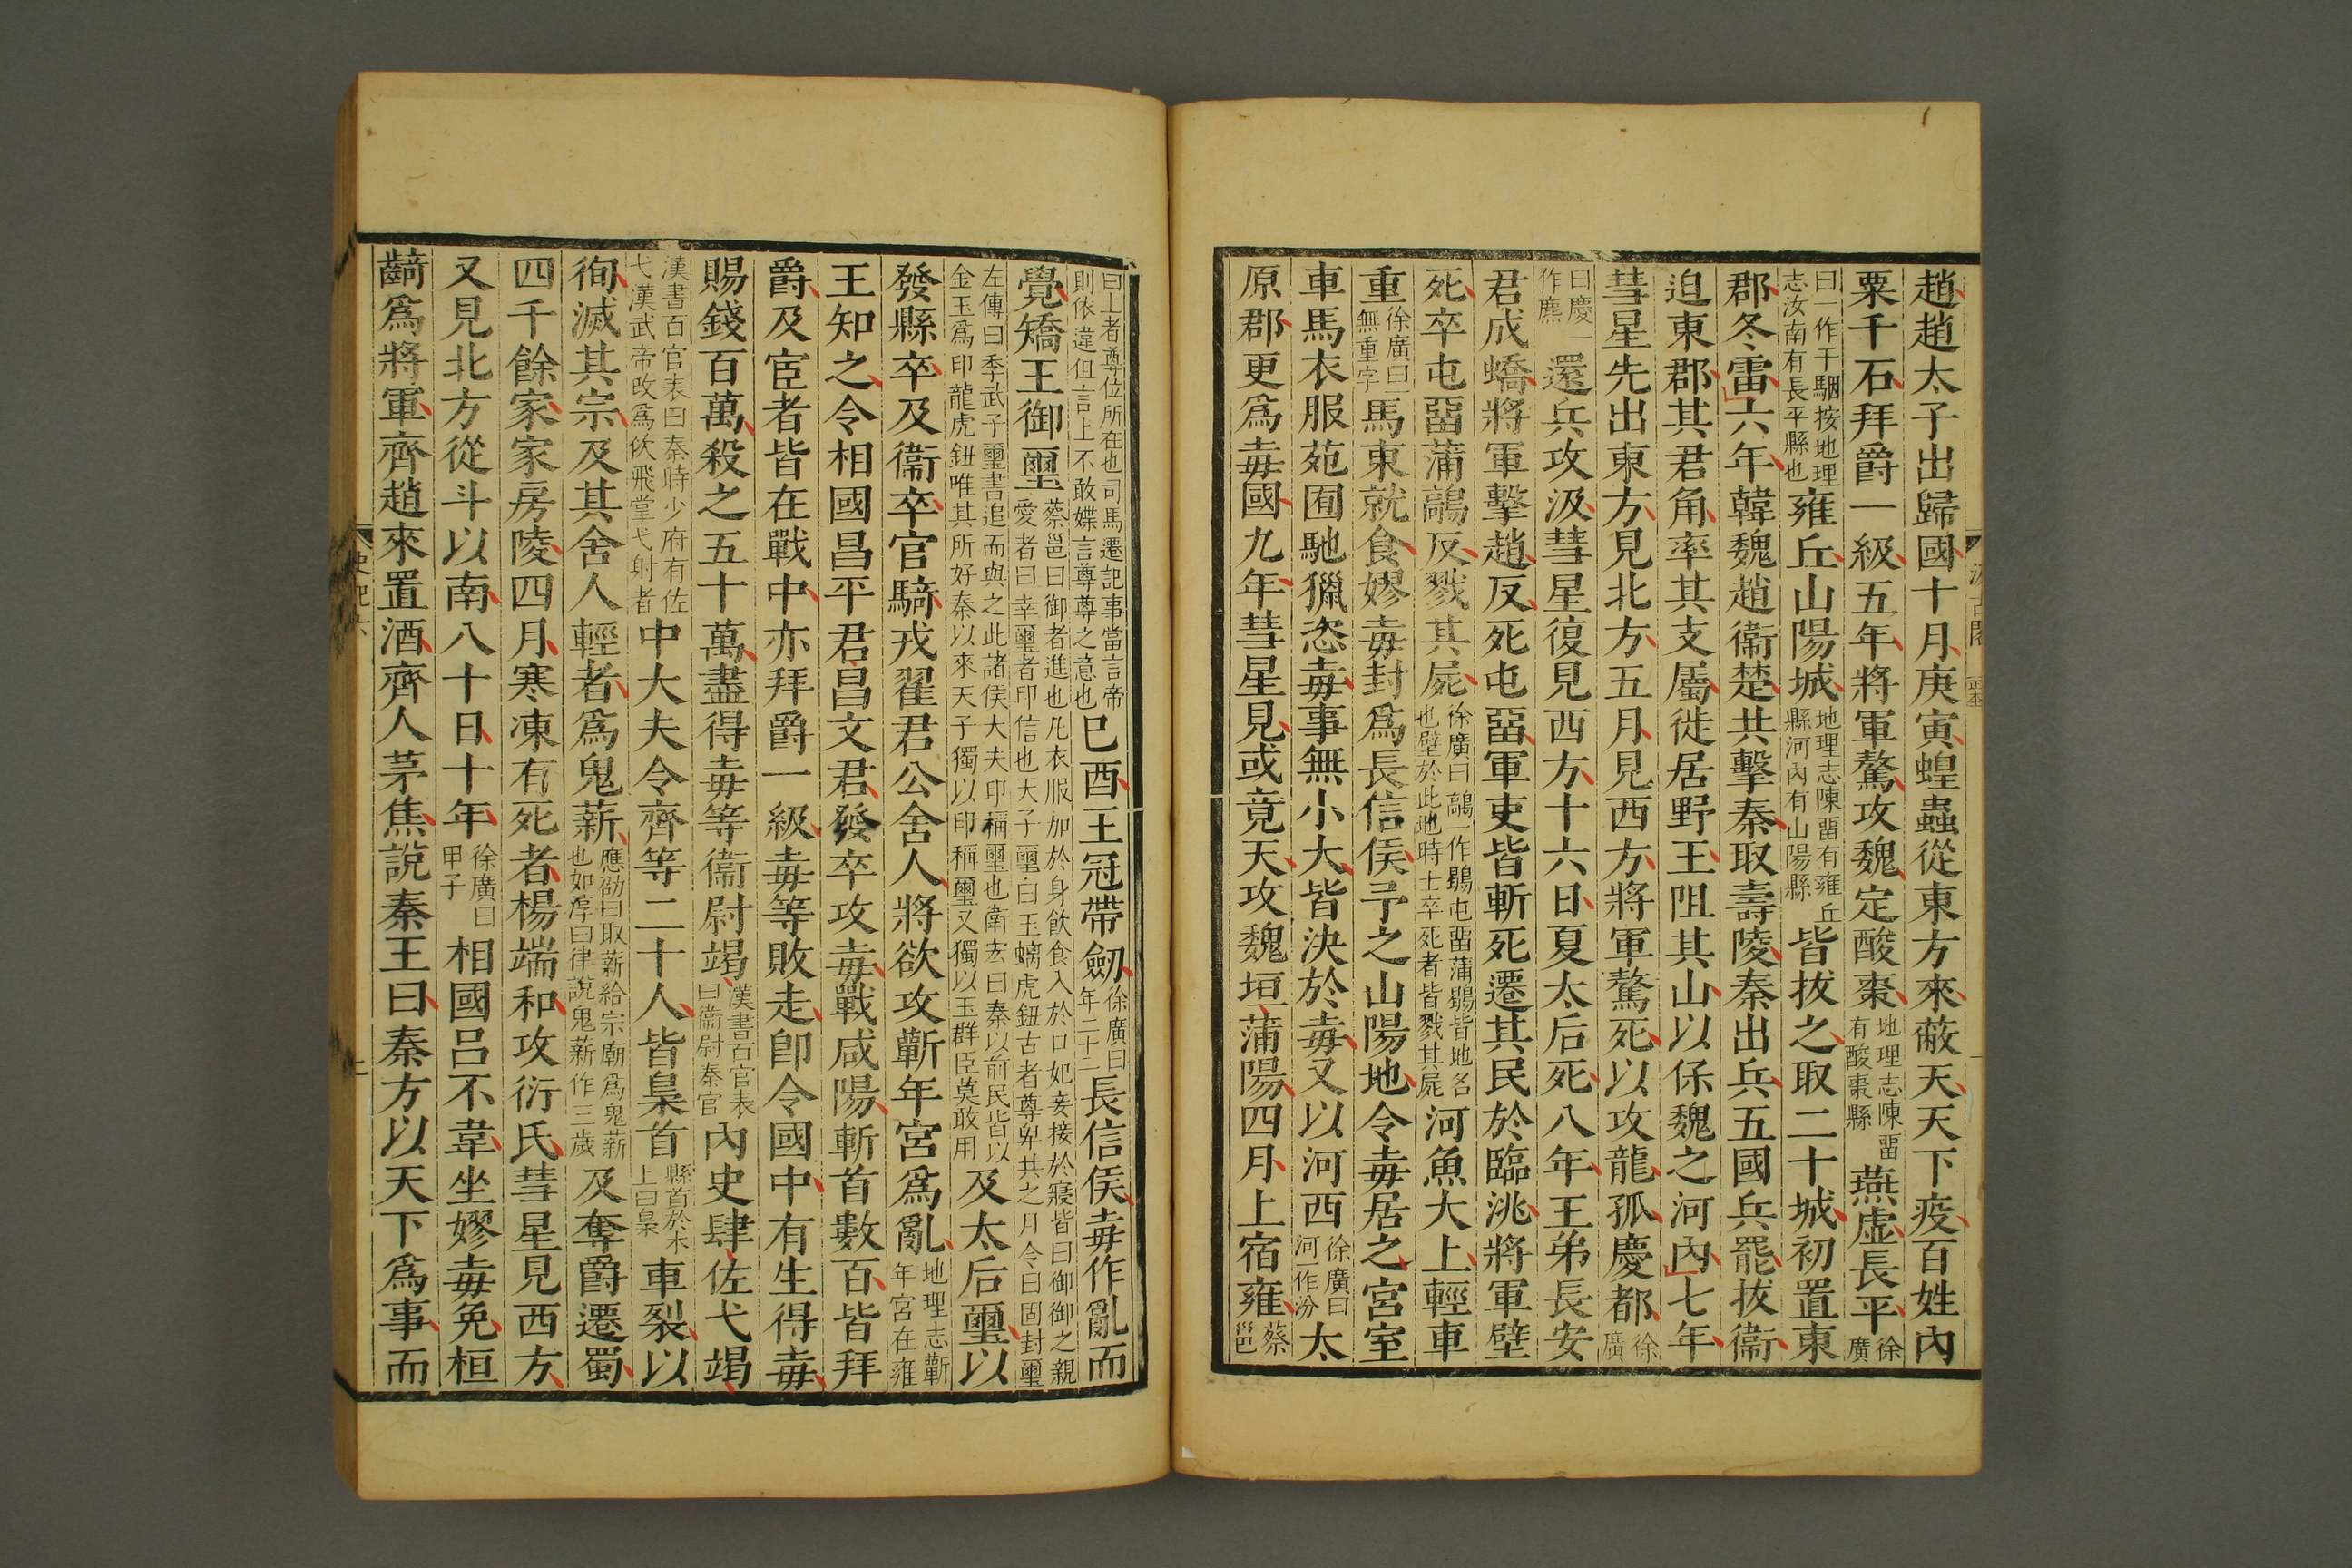 趙趙太子出歸國十月庚寅蝗蟲從東方來蔽天天下疫百姓內
粟千石拜爵一級五年將軍驁攻魏定酸棗地理志陳畱有酸棗縣燕虛長平徐廣
曰一作千駰按地理志汝南有長平縣也雍丘山陽城地理志陳畱有雍丘縣河內有山陽縣皆拔之取二十城初置東
郡冬雷六年韓魏趙衞楚共擊秦取壽陵秦出兵五國兵罷拔衞
迫東郡其君角率其支屬徙居野王阻其山以保魏之河內七年
彗星先出東方見北方五月見西方將軍驁死以攻龍孤慶都徐廣
曰慶一作麃還兵攻汲彗星復見西方十六日夏太后死八年王弟長安
君成蟜將軍擊趙反死屯畱軍吏皆斬死遷其民於臨洮將軍壁
死卒屯畱蒲鶮反戮其屍徐廣曰鶮一作鶡屯畱蒲鶡皆地名也壁於此地時士卒死者皆戮其屍河魚大上輕車
重徐廣曰一無重字馬東就食嫪毐封爲長信侯予之山陽地令毐居之宮室
車馬衣服苑囿馳獵恣毐事無小大皆決於毐又以河西徐廣曰河一作汾太
原郡更爲毐國九年彗星見或竟天攻魏垣蒲陽四月上宿雍蔡邕
曰上者尊位所在也司馬遷記事當言帝則依違但言上不敢媟言尊尊之意也已酉王冠帶劒徐廣曰年二十二長信侯毐作亂而
覺矯王御璽蔡邕曰御者進也凡衣服加於身飲食入於口妃妾接於寢皆曰御御之親愛者曰幸璽者印信也天子璽白玉螭虎鈕古者尊卑共之月令曰固封璽
左傳曰季武子璽書追而與之此諸侯大夫印稱璽也衞宏曰秦以前民皆以金玉爲印龍虎鈕唯其所好秦以來天子獨以印稱璽又獨以玉群臣莫敢用及太后璽以
發縣卒及衞卒官騎戎翟君公舍人將欲攻蘄年宮爲亂地理志蘄年宮在雍
王知之令相國昌平君昌文君發卒攻毐戰咸陽斬首數百皆拜
爵及宦者皆在戰中亦拜爵一級毐等敗走卽令國中有生得毐
賜錢百萬殺之五十萬盡得毐等衞尉竭漢書百官表曰衞尉秦官內史肆佐弋竭
漢書百官表曰秦時少府有佐弋漢武帝改爲佽飛掌弋射者中大夫令齊等二十人皆梟首縣首於木上曰梟車裂以
徇滅其宗及其舍人輕者爲鬼薪應劭曰取薪給宗廟爲鬼薪也如淳曰律說鬼薪作三歲及奪爵遷蜀
四千餘家家房陵四月寒凍有死者楊端和攻衍氏彗星見西方
又見北方從斗以南八十日十年徐廣曰甲子相國呂不韋坐嫪毐免桓
齮爲將軍齊趙來置酒齊人茅焦說秦王曰秦方以天下爲事而
史記六